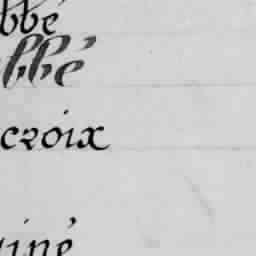 bbé
bbé
croix
iné